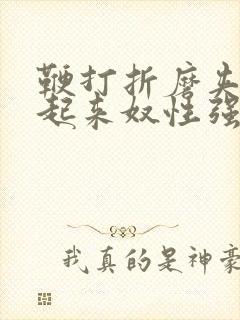 鞭打折磨夹
起来奴性强
我真的是神豪